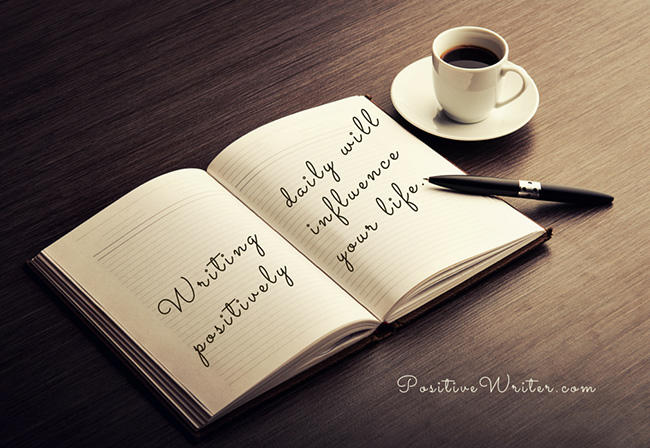 Writing
positively
daily will
influence
your life.
PositiveWriter.com